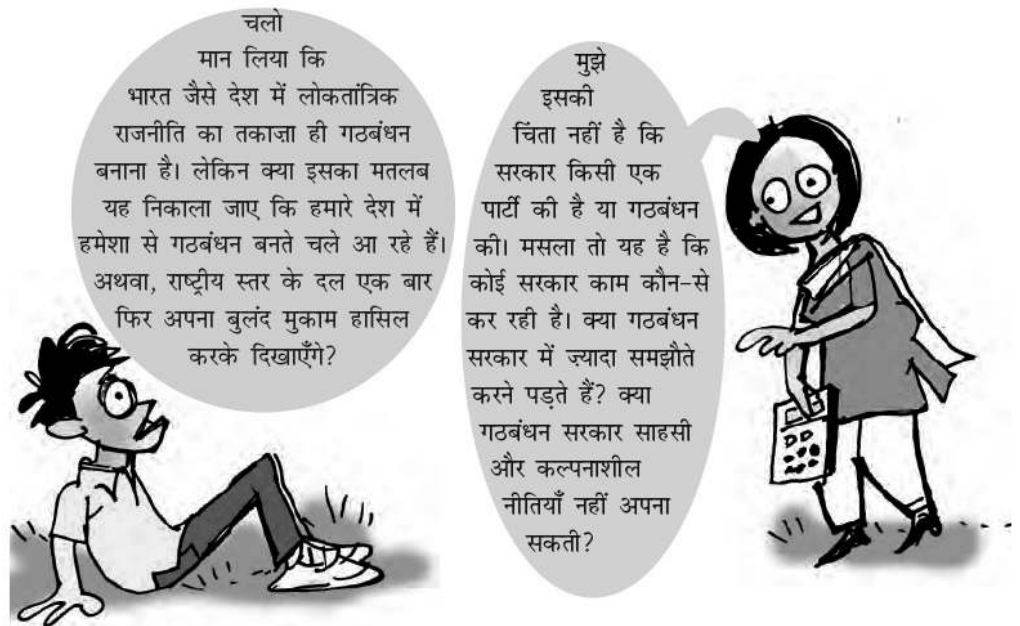 चलो
मान लिया कि
भारत जैसे देश में लोकतांत्रिक
राजनीति का तकाज़ा ही गठबंधन
बनाना है। लेकिन क्या इसका मतलब
यह निकाला जाए कि हमारे देश में
हमेशा से गठबंधन बनते चले आ रहे हैं।
अथवा, राष्ट्रीय स्तर के दल एक बार
फिर अपना बुलंद मुकाम हासिल
करके दिखाएँगे?
मुझे
इसकी
चिंता नहीं है कि
सरकार किसी एक
पार्टी की है या गठबंधन
की। मसला तो यह है कि
कोई सरकार काम कौन-से
कर रही है। क्या गठबंधन
सरकार में ज़्यादा समझौते
करने पड़ते हैं? क्या
गठबंधन सरकार साहसी
और कल्पनाशील
नीतियाँ नहीं अपना
सकती?